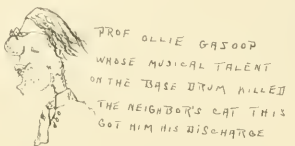 PROF OLLIE GASOOP
WHOSE MUSICAL TALENT
ON THE BASE DRUM KILLED
THE NEIGHBOR'S CAT THIS
GOT HIM HIS DISCHARGE